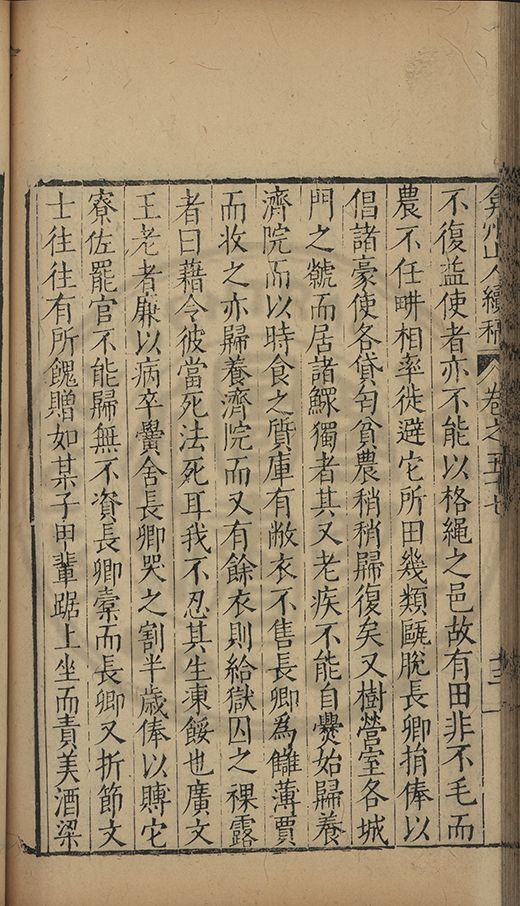 弇州山人續稿 卷之五十七 十三
不復益使者亦不能以格繩之邑故有田非不毛而
農不任畊相率徙避宅所田幾類甌脫長卿捐俸以
倡諸豪使各貸匄貧農稍稍歸復矣又樹營室各城
門之虩而居諸鰥獨者其又老疾不能自爨始歸養
濟院而以時食之質庫有敝衣不售長卿為讎薄賈
而收之亦歸養濟院而又有餘衣則給獄囚之裸露
者曰藉令彼當死法死耳我不忍其生凍餒也廣文
王老者廉以病卒黌舍長卿哭之割半歲俸以賻宅
寮佐罷官不能歸無不資長卿橐而長卿又折節文
士往往有所餽贈如某子甲輩踞上坐而責美酒粱